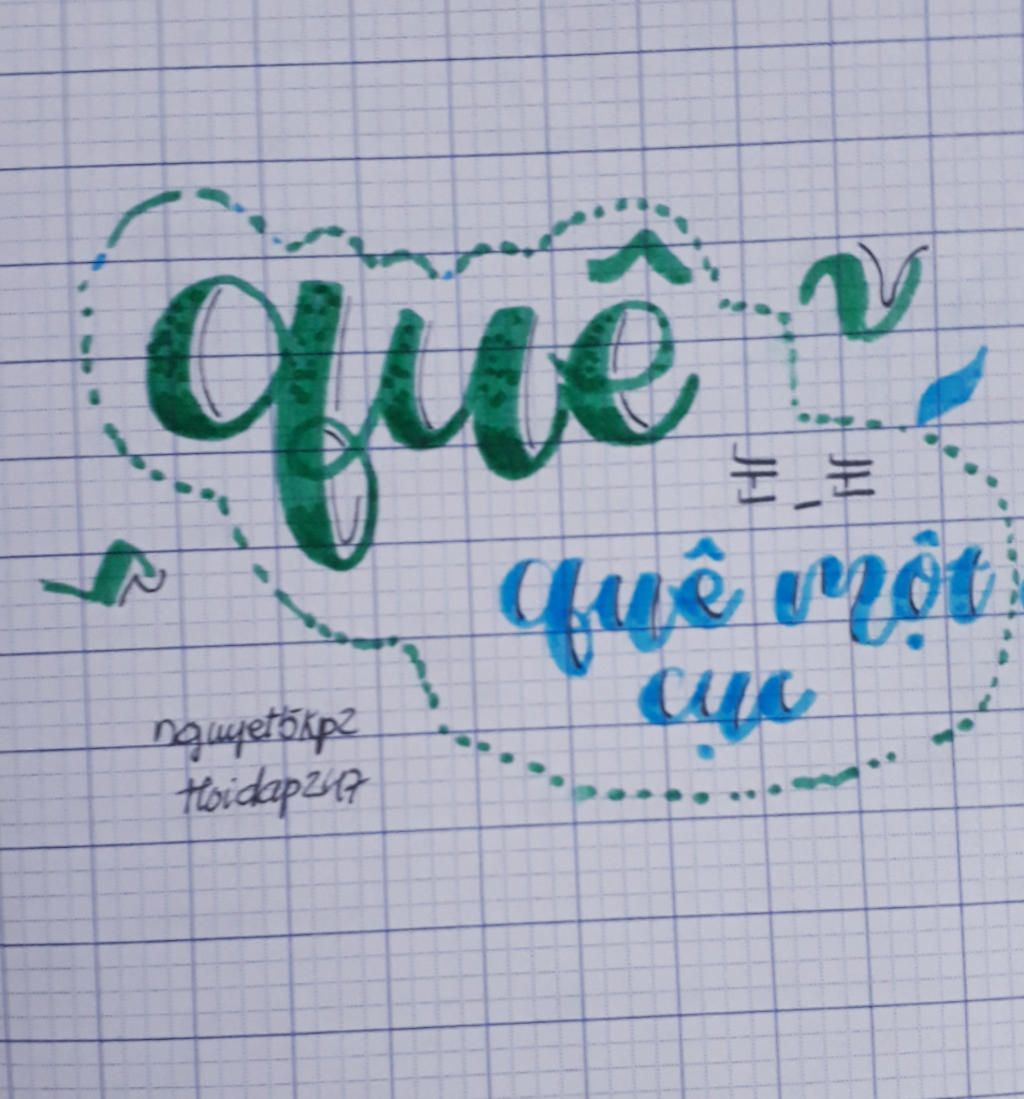 quê
quê một
cục
nguyet5kp2
Hoidap247